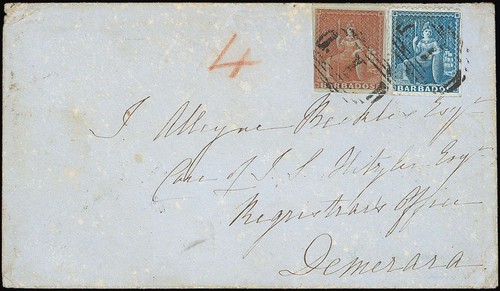 4
BARBADOS BARBADOS
J. Alleyne Beckles Esqr
Care of J. S. Hitzler Esqr
Registrars Office
Demerara